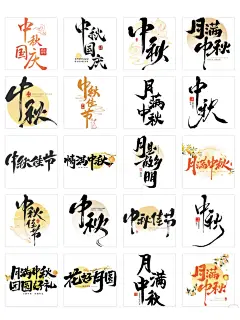 中秋
国庆
中秋
国庆
中秋
月满
中秋
中秋
中秋
佳节
月满
中秋
中秋
中秋佳节
情满中秋
月是
故乡明
月满中秋
中秋
佳节
中秋
中秋佳节
中秋
月满中秋
团圆好礼
花好月圆
月满
中秋
月满
中秋